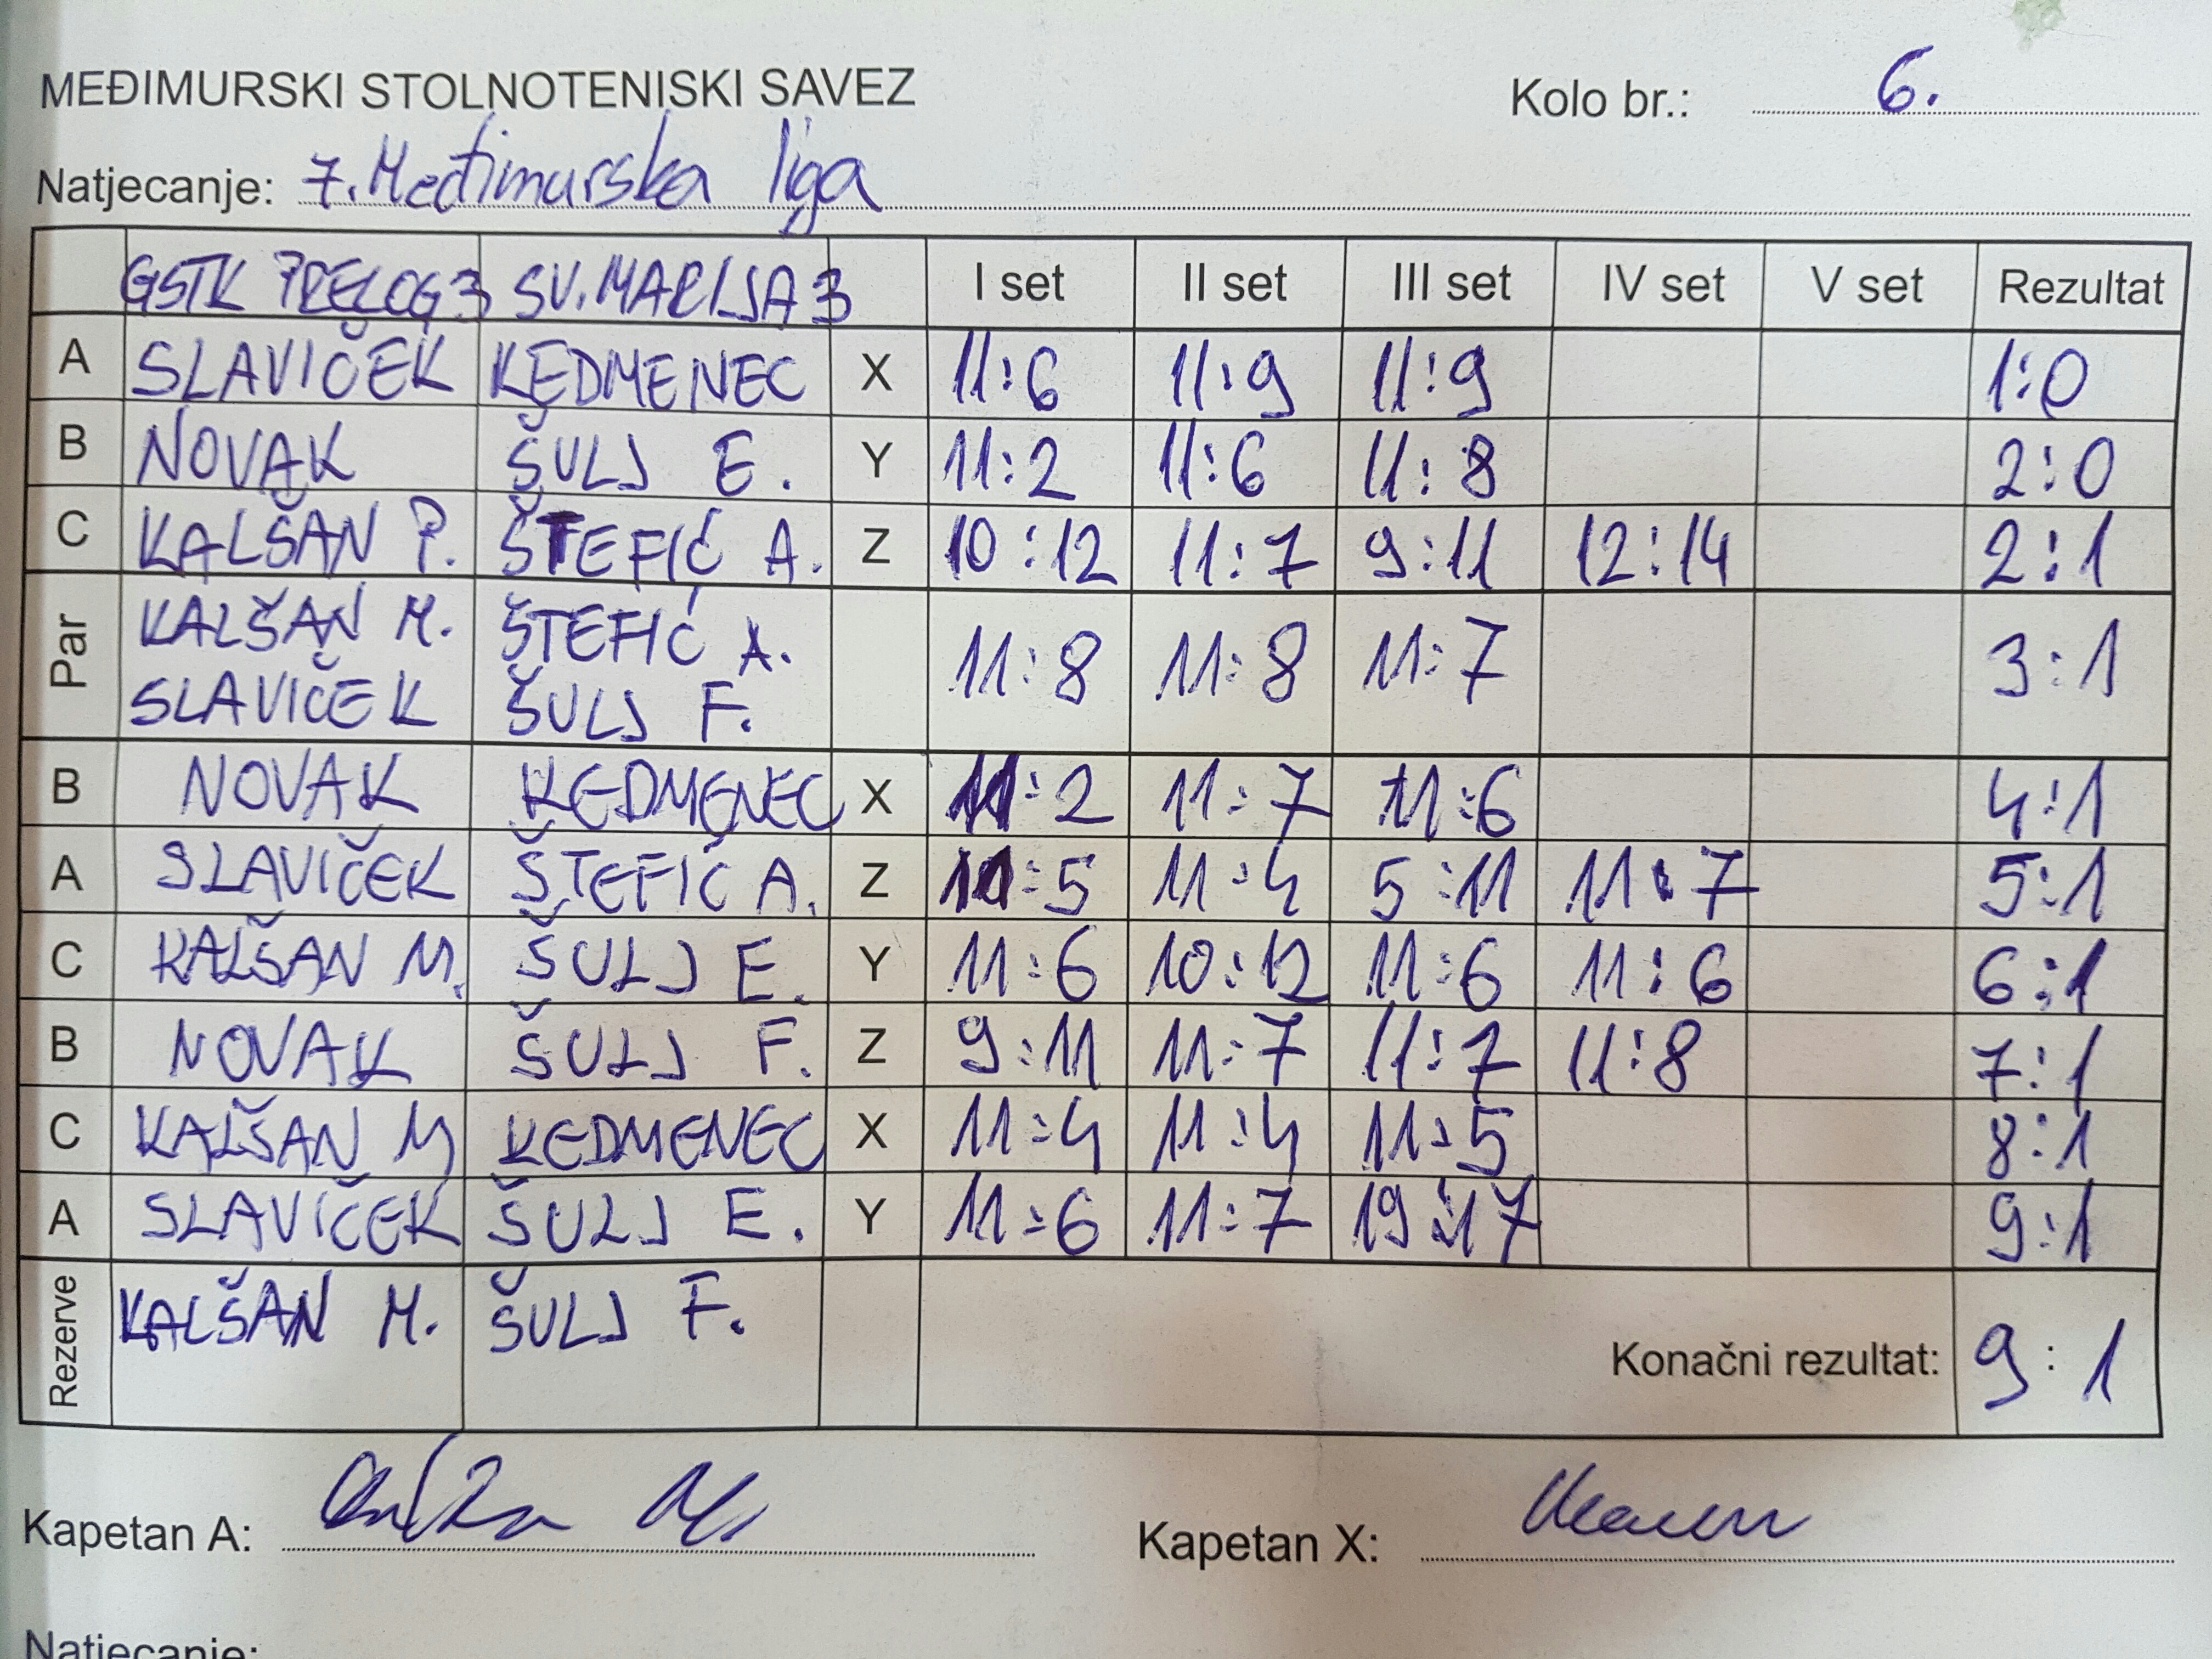 MEĐIMURSKI STOLNOTENISKI SAVEZ Kolo br.: 6.
Natjecanje: 7. Međimurska liga
GSTK PRELOG 3 SV. MARIJA 3 I set II set III set IV set V set Rezultat
A SLAVIČEK KEDMENEC X 11:6 11:9 11:9 1:0
B NOVAK ŠULJ E. Y 11:2 11:6 11:8 2:0
C KALŠAN P. ŠTEFIĆ A. Z 10:12 11:7 9:11 12:14 2:1
Par KALŠAN M. ŠTEFIĆ A. 11:8 11:8 11:7 3:1
SLAVIČEK ŠULJ F.
B NOVAK KEDMENEC X 11:2 11:7 11:6 4:1
A SLAVIČEK ŠTEFIĆ A. Z 11:5 11:4 5:11 11:7 5:1
C KALŠAN M. ŠULJ E. Y 11:6 10:12 11:6 11:6 6:1
B NOVAK ŠULJ F. Z 9:11 11:7 11:7 11:8 7:1
C KALŠAN M KEDMENEC X 11:4 11:4 11:5 8:1
A SLAVIČEK ŠULJ E. Y 11:6 11:7 19:17 9:1
Rezerve KALŠAN M. ŠULJ F. Konačni rezultat: 9:1
Kapetan A: Kapetan X:
Natjecanje: